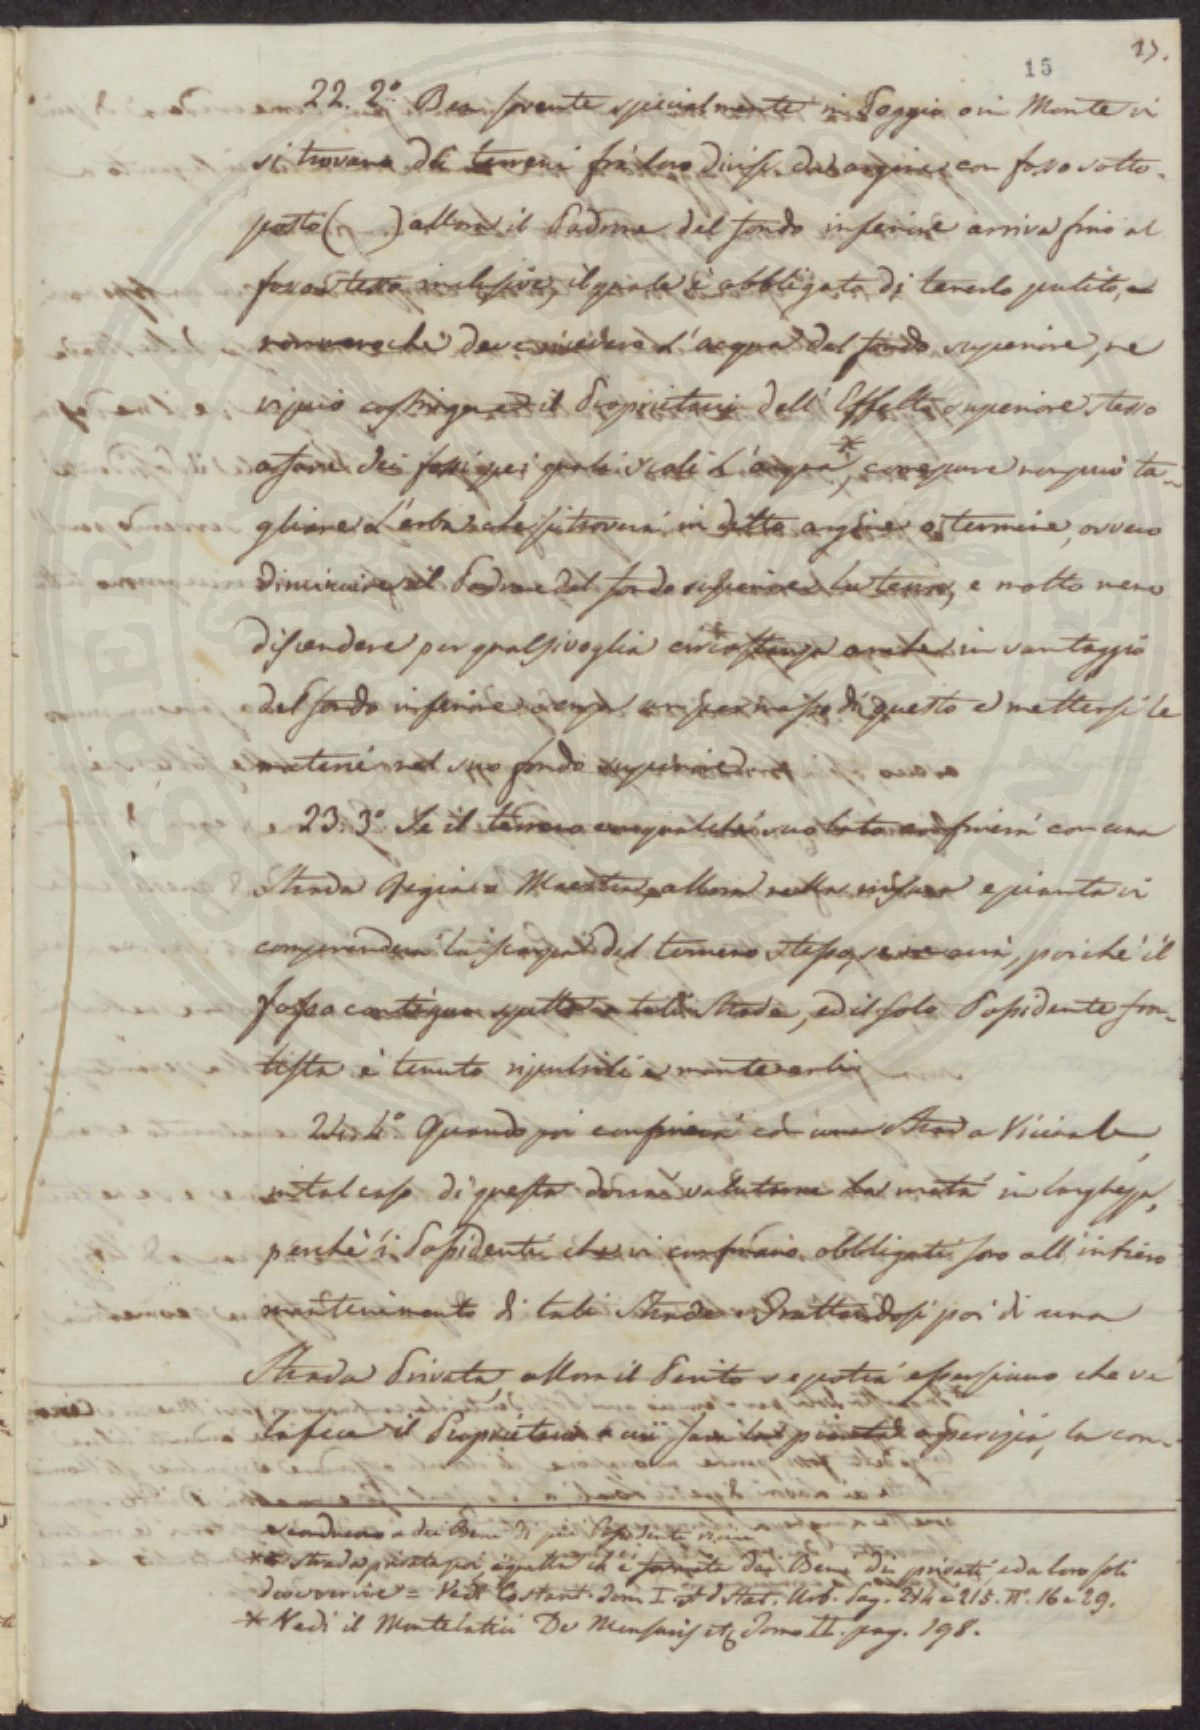 15
15.
22. 2.° Ben sovente specialmente in Poggio o in Monte vi
si trovano dei terreni frà loro divisi da argine con fosso sotto-
posto ( ) allora il Padrone del fondo inferiore arriva fino al
fosso stesso inclusive, il quale è obbligato di tenerlo pulito,
che deve ricevere l'acqua del fondo superiore, ne
vi può il Proprietario dell' Effetto superiore stesso
a fare dei fossi pei quali scoli l'acqua*, come pure non può ta-
gliare l'erba che si troverà in detto argine o termine, ovvero
diminuire il Padrone del fondo la terra, e molto meno
discendere per qualsivoglia circostanza anche in vantaggio
del fondo inferiore di questo e mettersi le
materie nel suo fondo superiore.
23. 3.° Se il terreno con qualche suo lato confinerà con una
Strada Regia o Maestra, allora nella misura e pianta vi
comprenderà la scarpa del terreno stesso, se ve avrà, poichè il
fosso contiguo spetta a tali Strade, ed il solo Possidente fron-
tista è tenuto ripulirli e mantenerli.
24. 4.° Quando poi confinerà con una Strada Vicinale,
in tal caso di questa dovrà valutarne la metà in larghezza,
perchè i Possidenti che vi confinano obbligati sono all' intiero
mantenimento di tali Strade. Trattandosi poi di una
Strada Privata, allora il Perito se potrà essersiano che vi
la fece il Proprietario a cui farà la pianta o perizia, la con-
e conducono a dei Beni di più Possidenti vicini
* strada privata poi, è quella che è formata dai Beni dei privati, ed a loro soli
deve servire = Vedi Costant. dom. I. Stat. Urb. Pag. 214 e 215. N.° 16 e 29.
* Vedi il Montelatici De Mensuris etc Tomo II. pag. 198.